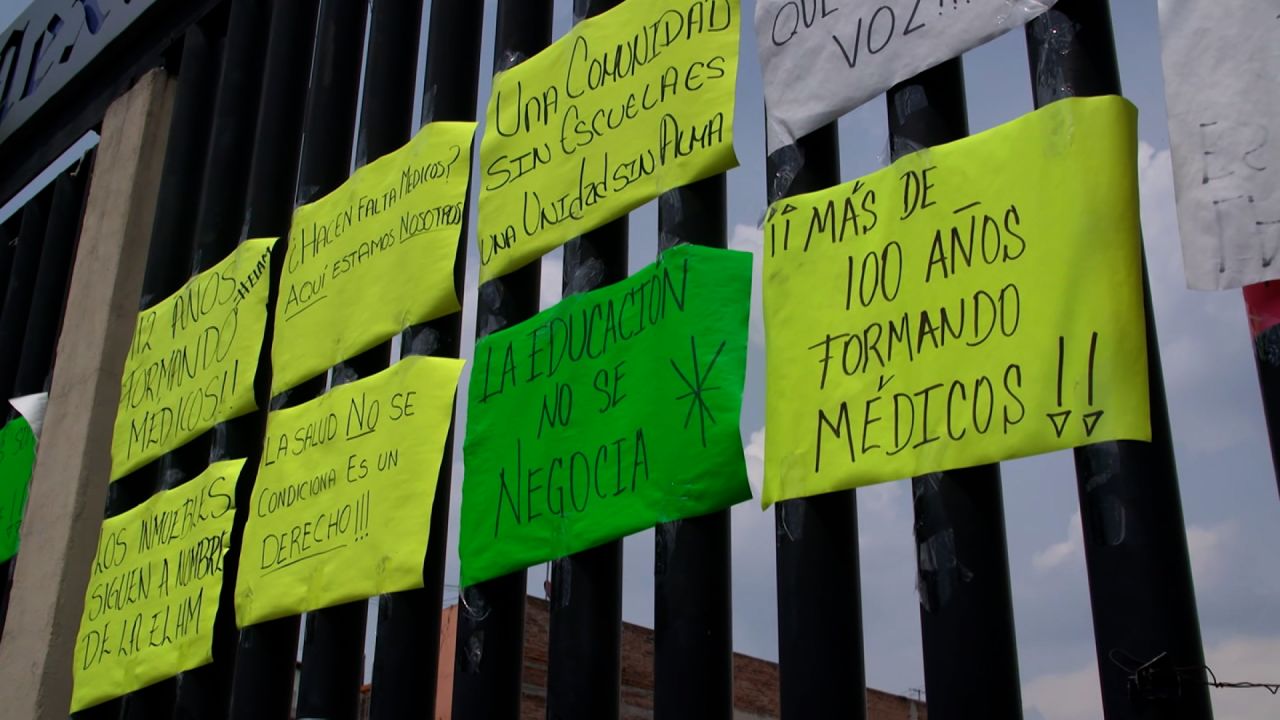 112 AÑOS
FORMANDO
MEDICOS!!
¿HACEN FALTA MEDICOS?
AQUÍ ESTAMOS NOSOTROS
UNA COMUNIDAD
SIN ESCUELA ES
UNA UNIDAD SIN ALMA
QUE
VOZ!!!
¡¡ MÁS DE
100 AÑOS
FORMANDO
MÉDICOS !!
LOS INMUEBLES
SIGUEN A NOMBRE
DE LA ELHM
LA SALUD NO SE
CONDICIONA ES UN
DERECHO!!!
LA EDUCACIÓN
NO SE
NEGOCIA